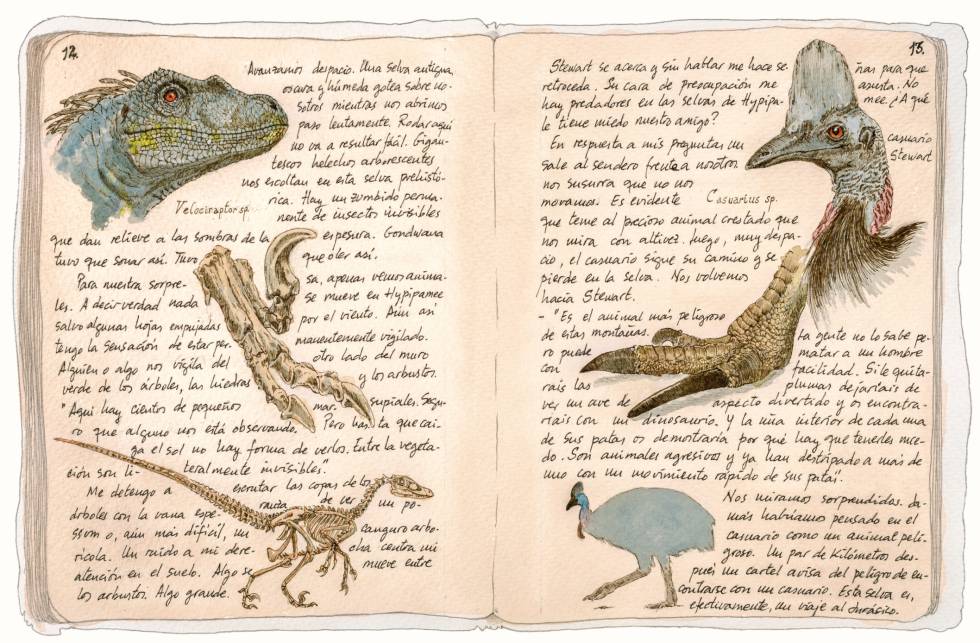 12.
Avanzamos despacio. Una selva antigua,
oscura y húmeda gotea sobre no-
sotros mientras nos abrimos
paso lentamente. Rodar aquí
no va a resultar fácil. Gigan-
tescos helechos arborescentes
nos escoltan en esta selva prehistó-
rica. Hay un zumbido perma-
nente de insectos invisibles
Velociraptor sp.
que dan relieve a las sombras de la espesura. Gondwana
tuvo que sonar así. Tuvo que oler así.
Para nuestra sorpre- sa, apenas vemos anima-
les. A decir verdad nada se mueve en Hypipamee
salvo algunas hojas empujadas por el viento. Aún así
tengo la sensación de estar per- manentemente vigilado.
Alguien o algo nos vigila del otro lado del muro
verde de los árboles, las hiedras y los arbustos.
"Aquí hay cientos de pequeños mar- supiales. Segu-
ro que alguno nos está observando. Pero hasta que cai-
ga el sol no hay forma de verlos. Entre la vegeta-
ción son li- teralmente invisibles".
Me detengo a escrutar las copas de los
árboles con la vana espe- ranza de ver un po-
ssum o, aún más difícil, un canguro arbo-
rícola. Un ruido a mi dere- cha centra mi
atención en el suelo. Algo se mueve entre
los arbustos. Algo grande.
13.
Stewart se acerca y sin hablar me hace se- ñas para que
retroceda. Su cara de preocupación me asusta. No
hay predadores en las selvas de Hypipa- mee ¿A qué
le tiene miedo nuestro amigo?
En respuesta a mis preguntas un casuario
sale al sendero frente a nosotros Stewart
nos susurra que no nos
movamos. Es evidente
Casuarius sp.
que teme al precioso animal crestado que
nos mira con altivez. Luego, muy despa-
cio, el casuario sigue su camino y se
pierde en la selva. Nos volvemos
hacia Stewart.
- "Es el animal más peligroso
de estas montañas. La gente no lo sabe pe-
ro puede matar a un hombre
con facilidad. Si le quita-
rais las plumas dejaríais de
ver un ave de aspecto divertido y os encontra-
ríais con un dinosaurio. Y la uña interior de cada una
de sus patas os demostraría por qué hay que tenerles mie-
do. Son animales agresivos y ya han destripado a más de
uno con un movimiento rápido de sus patas".
Nos miramos sorprendidos. Ja-
más habríamos pensado en el
casuario como un animal peli-
groso. Un par de kilómetros des-
pués un cartel avisa del peligro de en-
contrarse con un casuario. Esta selva es,
efectivamente, un viaje al Jurásico.